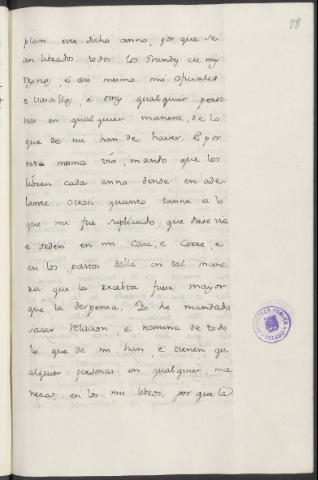 78
plan esse dicho anno, por que se
an librados todos los Grandes de my
Reyno, e assi mesmo mis oficiales
e vasallos, e otras qualquier perso
nas en qualquier manera, de lo
que de mi han de haver. E por
essa mesma via, mando que los
libren cada anno dende en ade
lante. Otrosi quanto tanne a lo
que me fue suplicado que diese via
e orden en mi Casa, e Corte, e
en los gastos della en tal mane
ra que la recebta fuese mayor
que la despensa. Yo he mandado
sacar relacion, e nomina de todo
lo que de mi han, e tienen qu
alquier personas en qualquier ma
nera, en los mis libros, por que la
BIBLIOTECA PUBLICA
TOLEDO